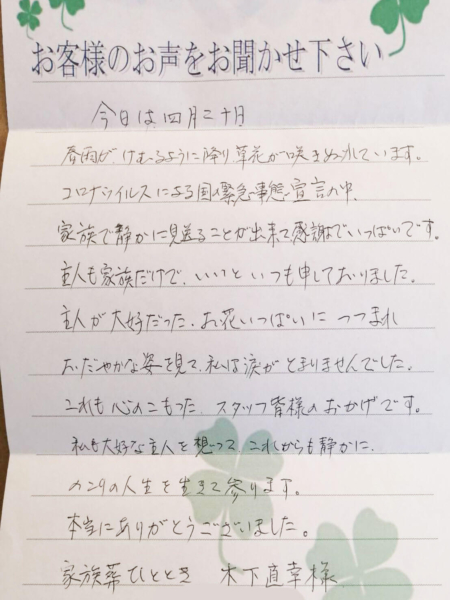 お客様のお声をお聞かせ下さい
今日は四月二十日
春雨が、けむるように降り、草花が咲きみだれています。
コロナウイルスによる国の緊急事態宣言の中、
家族で静かに見送ることが出来て感謝でいっぱいです。
主人も家族だけで、いいと いつも申しておりました。
主人が大好だった、お花いっぱいに つつまれ
おだやかな姿を見て、私は涙がとまりませんでした。
これも 心のこもった、スタッフ皆様のおかげです。
私も大好な主人を想って、これからも静かに、
の人生を生きて参ります。
本当にありがとうございました。
家族葬ひととき 木下直幸様